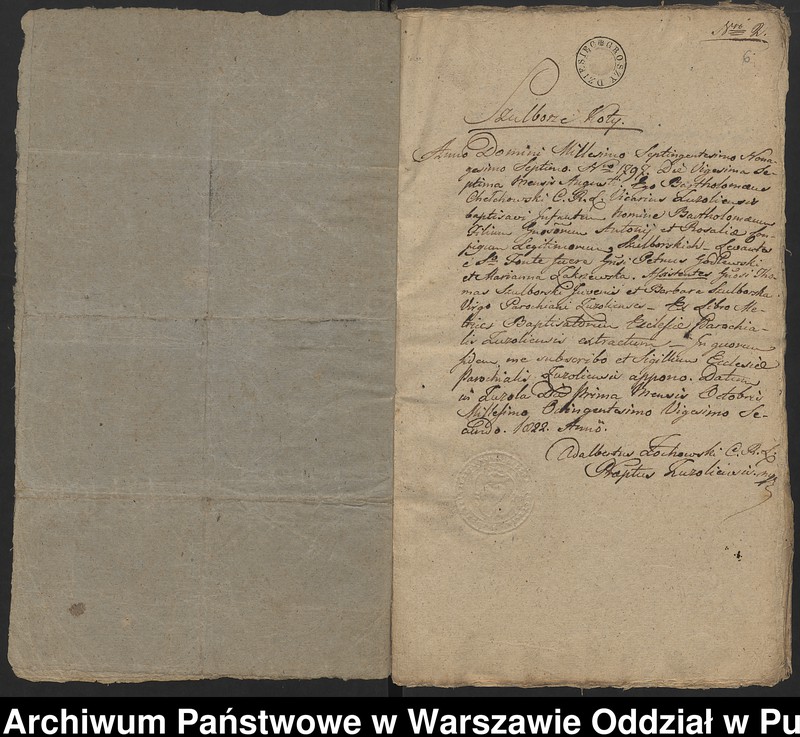 Nro 2.
6
DZIESIĘC GROSZY
Szulborze Koty.
Anno Domini Millesimo Septingentesimo Nona-
gesimo Septimo. Nro 1797. Die Vigesima Se-
ptima Mensis Augusti. Ego Bartholomæus
Chełchowski C. R. L. Vicarius Zuzoliensis
baptisavi Infantem Nomine Bartholomæum
Filium Gnosorum Antonij et Rosaliæ Con-
jugum Legitimorum Szulborskich - Levantes
è Sto Fonte fuere Gnosi Petrus Godlewski
et Marianna Zakrzewska. Assistentes Gnosi Tho-
mas Szulborski Juvenis et Barbara Szulborska
Virgo Parochiani Zuzolienses - Ex Libro Me-
trices Baptisatorum Ecclesiæ Parochia-
lis Zuzoliensis extractum - In quorum
fidem me subscribo et Sigillum Ecclesiæ
Parochialis Zuzoliensis appono. Datum
in Zuzola Die Prima Mensis Octobris
Millesimo Octingentesimo Vigesimo Se-
cundo. 1822. Anno.
Adalbertus Żochowski C. R. L.
Præptus Zuzoliensis mp
Archiwum Państwowe w Warszawie Oddział w Pu